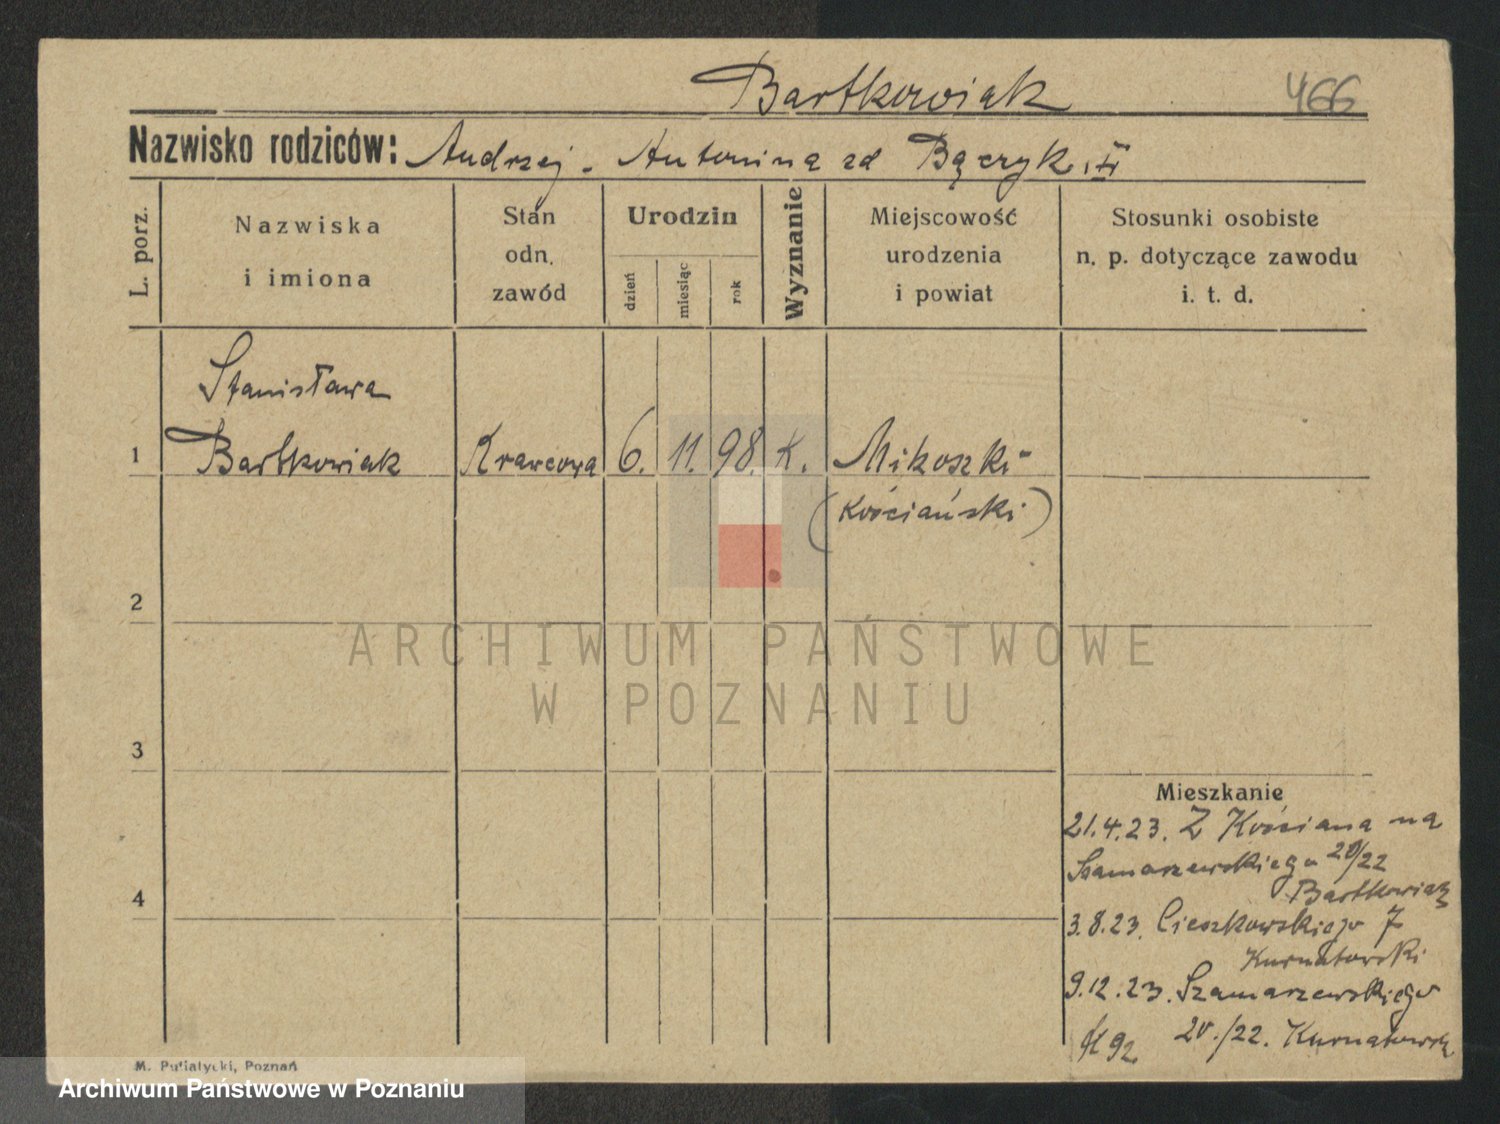 Bartkowiak 466
Nazwisko rodziców: Andrzej - Antonina zd Bączyk
L. porz.
Nazwiska
i imiona
Stan
odn.
zawód
Urodzin
dzień
miesiąc
rok
Wyznanie
Miejscowość
urodzenia
i powiat
Stosunki osobiste
n. p. dotyczące zawodu
i. t. d.
Stanisława
1 Bartkowiak Krawcowa 6. 11. 98. K. Mikoszki-
(Kościański)
2
ARCHIWUM PAŃSTWOWE
W POZNANIU
3
Mieszkanie
21.4.23. Z Kościana na
Szamarzewskiego 20/22
Bartkowiak
4
3.8.23. Cieszkowskiego 7
Kurnatowski
9.12.23. Szamarzewskiego
20./22. Kurnatowski
M. Putiatycki, Poznań
Archiwum Państwowe w Poznaniu